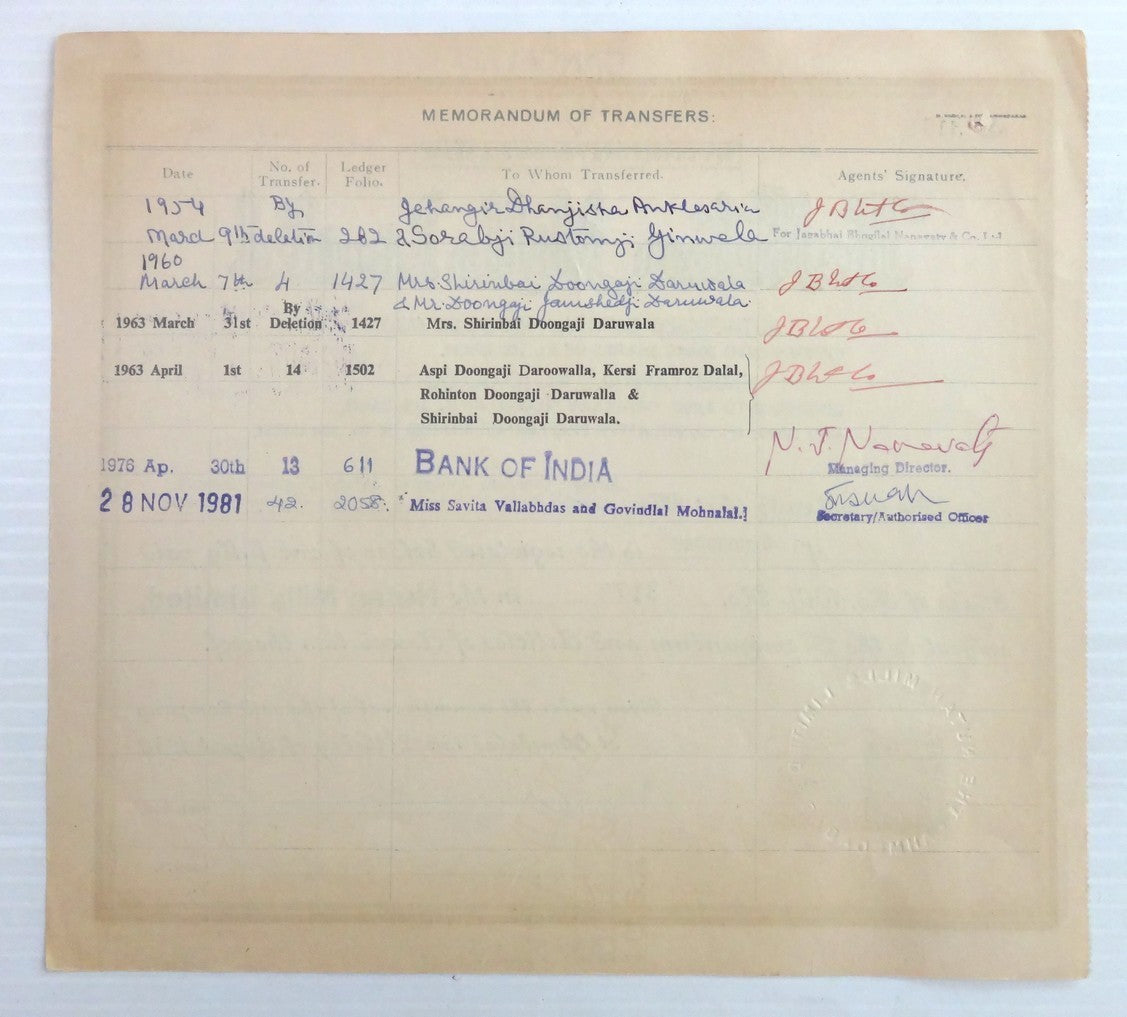 MEMORANDUM OF TRANSFERS:
Date No. of Transfer. Ledger Folio. To Whom Transferred. Agents' Signature.
1954 By Jehangir Dhanjisha Anklesaria
March 9th deletion 282 & Sorabji Rustomji Ginwala
For Jagabhai Bhogilal Nanavaty & Co. Ltd.
1960
March 7th 4 1427 Mrs. Shirinbai Doongaji Daruwala
& Mr. Doongaji Jamshedji Daruwala.
1963 March 31st By Deletion 1427 Mrs. Shirinbai Doongaji Daruwala
1963 April 1st 14 1502 Aspi Doongaji Daroowalla, Kersi Framroz Dalal,
Rohinton Doongaji Daruwalla &
Shirinbai Doongaji Daruwala.
1976 Ap. 30th 13 611 BANK OF INDIA
Managing Director.
28 NOV 1981 42. 2058. Miss Savita Vallabhdas and Govindlal Mohnalal.]
Secretary/Authorised Officer